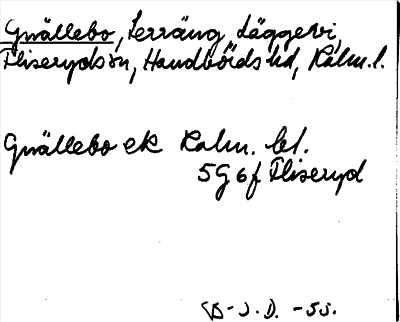 Gnällebo, Terräng, Läggevi,
Fliseryds sn, Handbörds hd, Kalm. l.
Gnällebo ek Kalm. bl.
5G 6f Fliseryd
B-J.D. -55.